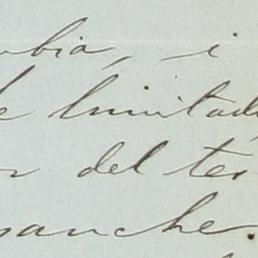 bia, i
limitad
del ter
anche.